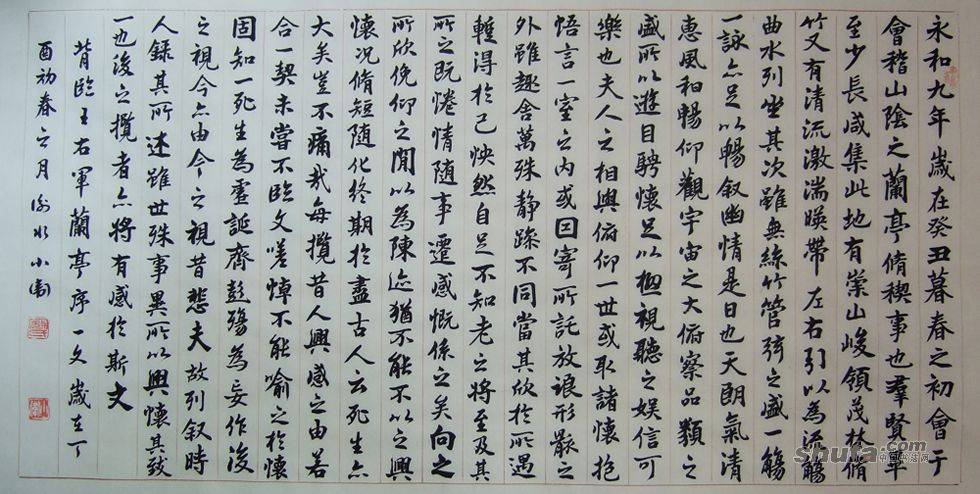 永和九年歲在癸丑暮春之初會于
會稽山陰之蘭亭脩稧事也羣賢畢
至少長咸集此地有崇山峻領茂林脩
竹又有清流激湍暎帶左右引以為流觴
曲水列坐其次雖無絲竹管弦之盛一觴
一詠亦足以暢叙幽情是日也天朗氣清
惠風和暢仰觀宇宙之大俯察品類之
盛所以遊目騁懷足以極視聽之娛信可
樂也夫人之相與俯仰一世或取諸懷抱
悟言一室之内或因寄所託放浪形骸之
外雖趣舍萬殊静躁不同當其欣於所遇
暫得於己怏然自足不知老之將至及其
所之既惓情随事遷感慨係之矣向之
所欣俛仰之閒以為陳迹猶不能不以之興
懷况脩短随化終期於盡古人云死生亦
大矣豈不痛哉每攬昔人興感之由若
合一契未嘗不臨文嗟悼不能喻之於懷
固知一死生為虛誕齊彭殤為妄作後
之視今亦由今之視昔悲夫故列叙時
人錄其所述雖世殊事異所以興懷其致
一也後之攬者亦將有感於斯文
背臨王右軍蘭亭序一文歲在丁
酉初春之月 水小衛
shufa.com
中国书法网